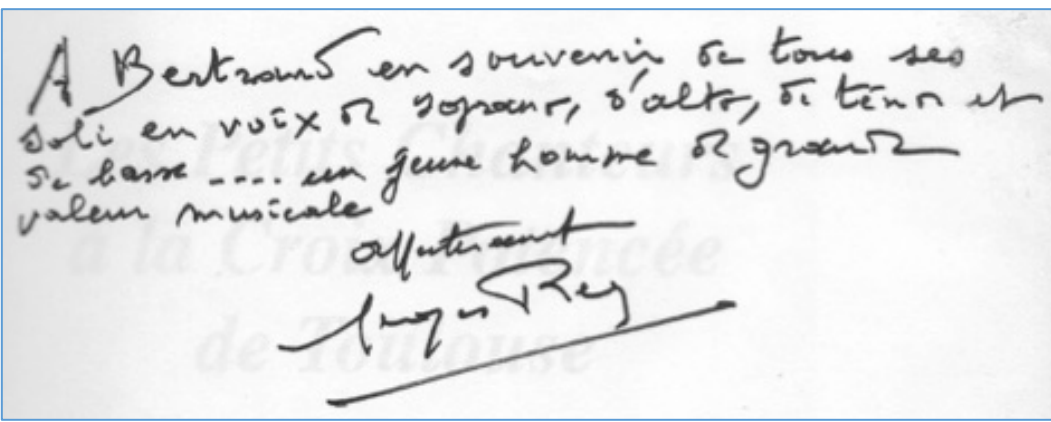 A Bertrand en souvenir de tous ses
soli en voix de soprano, d'alto, de ténor et
de basse .... un jeune homme de grande
valeur musicale
affectueusement
Georges Rey
Les Petits Chanteurs
à la Croix Potencée
de Toulouse